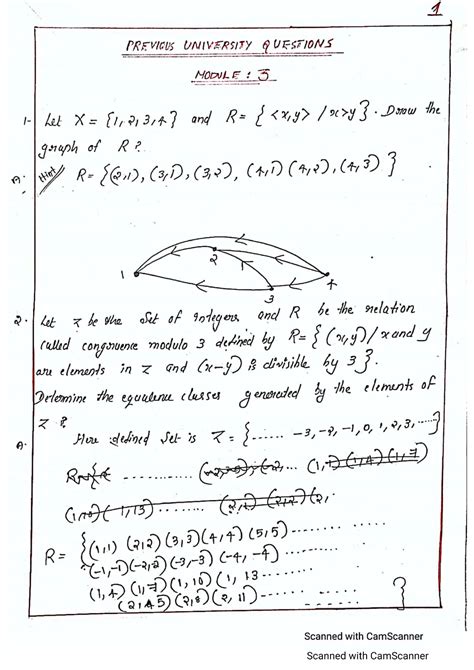 1
PREVIOUS UNIVERSITY QUESTIONS
MODULE : 3
1- Let X = {1,2,3,4} and R = {<x,y> / x>y}. Draw the
graph of R?
A: Hint R = {(2,1), (3,1), (3,2), (4,1) (4,2), (4,3)}
1 2 3 4
2. Let Z be the set of integers and R be the relation
called congruence modulo 3 defined by R = {(x,y) / x and y
are elements in Z and (x-y) is divisible by 3}.
Determine the equivalence classes generated by the elements of
Z ?
A. Here defined set is Z = {...... -3, -2, -1, 0, 1, 2, 3, ......}
(1,4) (1,7)
(1,10) (1,13) ...... (2,2) (2,
R = {(1,1) (2,2) (3,3) (4,4) (5,5) ......
(-1,-1) (-2,-2) (-3,-3) (-4,-4) ......
(1,4) (1,7) (1,10) (1, 13 ......
(2,8) (2,11) ...... }
Scanned with CamScanner
Scanned with CamScanner